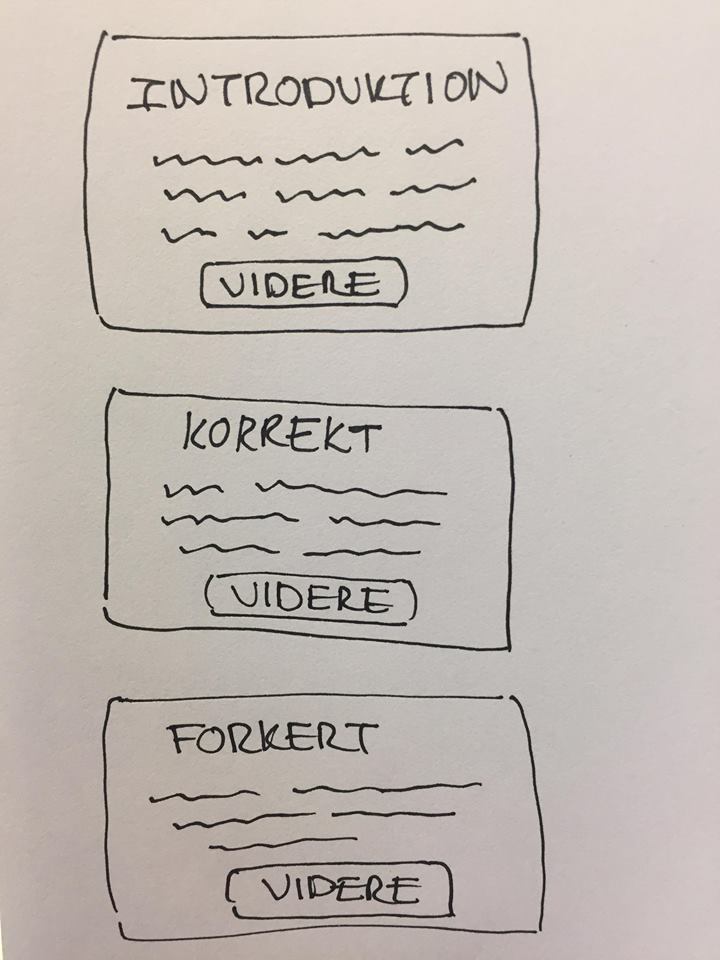 INTRODUKTION
VIDERE
KORREKT
VIDERE
FORKERT
VIDERE